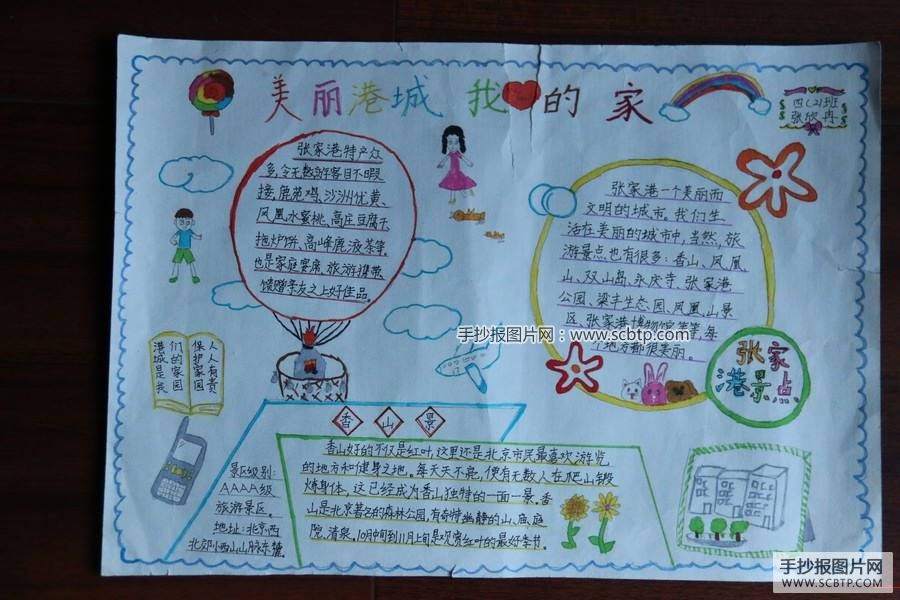 美丽港城 我的家
四(2)班
张欣冉
张家港特产众
多,令无数游客目不暇
接,鹿苑鸡、沙洲优黄、
凤凰水蜜桃、高庄豆腐干、
拖炉饼、高峰鹿液茶等。
也是家庭宴席、旅游携带
馈赠亲友之上好佳品。
张家港一个美丽而
文明的城市。我们生
活在美丽的城市中,当然,旅
游景点也有很多:香山、凤凰
山、双山岛、永庆寺、张家港
公园、梁丰生态园、凤凰山景
区、张家港博物馆等等,每
个地方都很美丽。
手抄报图片网:www.scbtp.com
张家
港景点
人人有责
保护家园
们的家园
港城是我
香山景
景区级别:
AAAA级
旅游景区。
地址:北京西
北郊小西山山脉东麓
香山好的不仅是红叶,这里还是北京市民最喜欢游览
的地方和健身之地。每天天不亮,便有无数人在爬山锻
炼身体,这已经成为香山独特的一面一景。香
山是北京著名的森林公园,有奇特幽静的山、庭
院、清泉。10月中旬到11月上旬是观赏红叶的最好季节。
手抄报图片网
WWW.SCBTP.COM